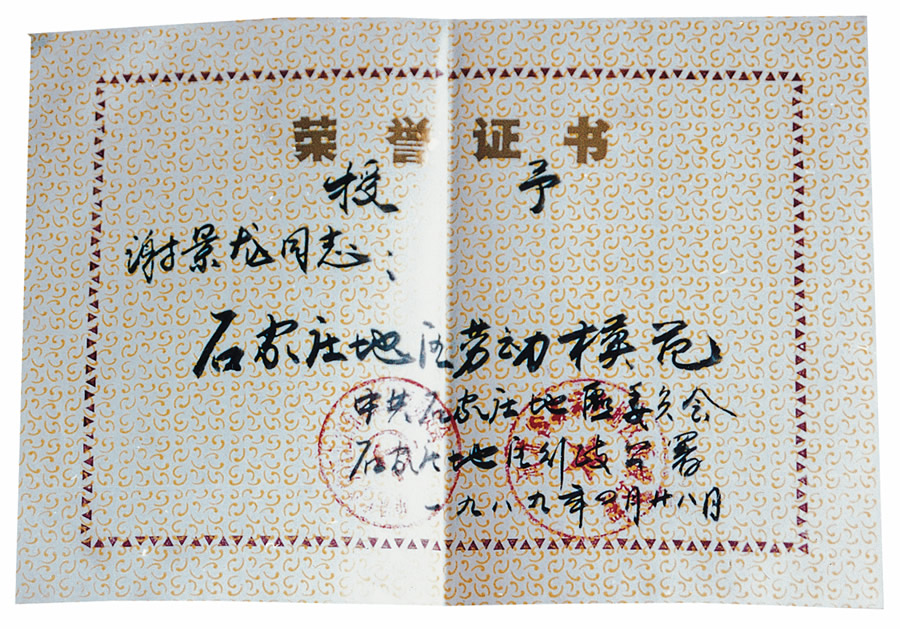 荣誉证书
授予
谢景龙同志：
石家庄地区劳动模范
中共石家庄地區委员会
石家庄地区行政公署
一九八九年四月廿八日